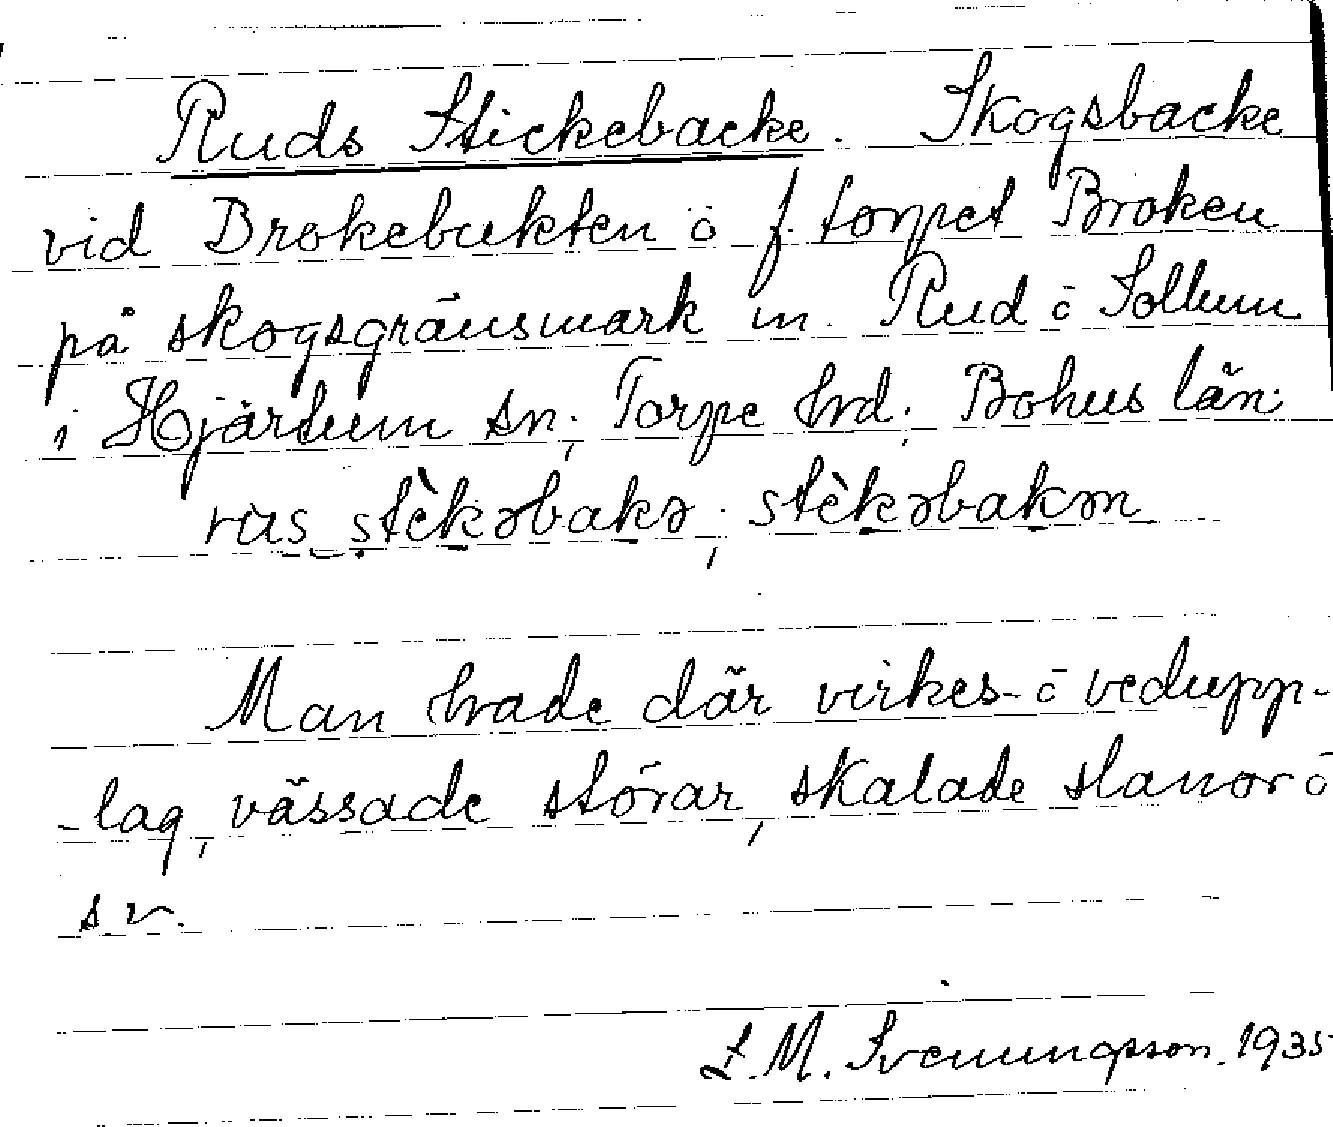 Ruds Stickebacke. Skogsbacke
vid Brokebukten ö f. torpet Broken
på skogsgränsmark m. Rud ō Sollum
i Hjärtum sn; Torpe hrd; Bohus län.
rus stèkəbakə, stèkəbakən
Man hade där virkes- ō vedupp-
-lag, vässade störar, skalade slanor ō
s v.
F. M. Svenungsson. 1935